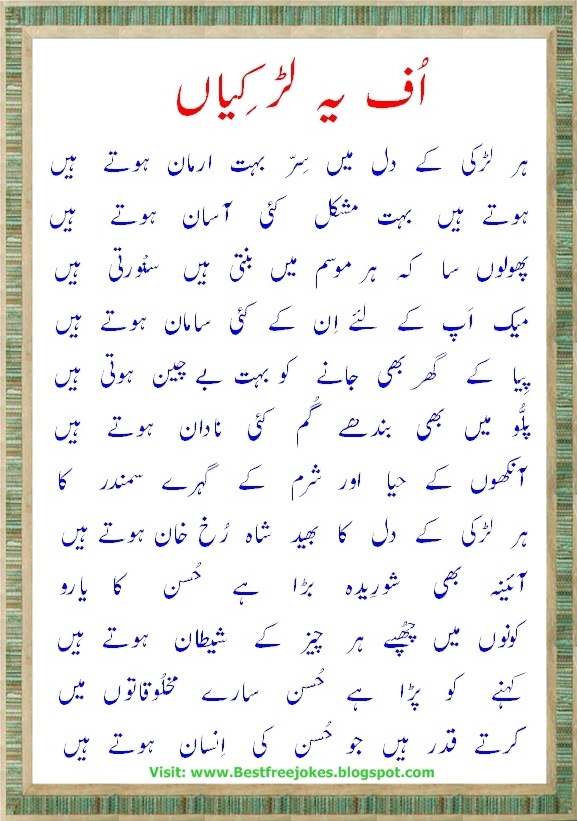 اُف یہ لڑکِیاں
ہر لڑکی کے دل میں سِرّ بہت ارمان ہوتے ہیں
ہوتے ہیں بہت مشکل کئی آسان ہوتے ہیں
پھولوں سا کہ ہر موسم میں بنتی ہیں سنْورتی ہیں
میک اَپ کے لئے اِن کے کئی سامان ہوتے ہیں
پِیا کے گھر بھی جانے کو بہت بے چین ہوتی ہیں
پلُّو میں بھی بندھے گُم کئی نادان ہوتے ہیں
آنکھوں کے حیا اور شرم کے گہرے سمندر کا
ہر لڑکی کے دل کا بھید شاہ رُخ خان ہوتے ہیں
آئینہ بھی شورِیدہ بڑا ہے حُسن کا یارو
کونوں میں چُھپے ہر چیز کے شیطان ہوتے ہیں
کہنے کو پڑا ہے حُسن سارے مخلُوقاتوں میں
کرتے قدر ہیں جو حُسن کی اِنسان ہوتے ہیں
Visit: www.Bestfreejokes.blogspot.com